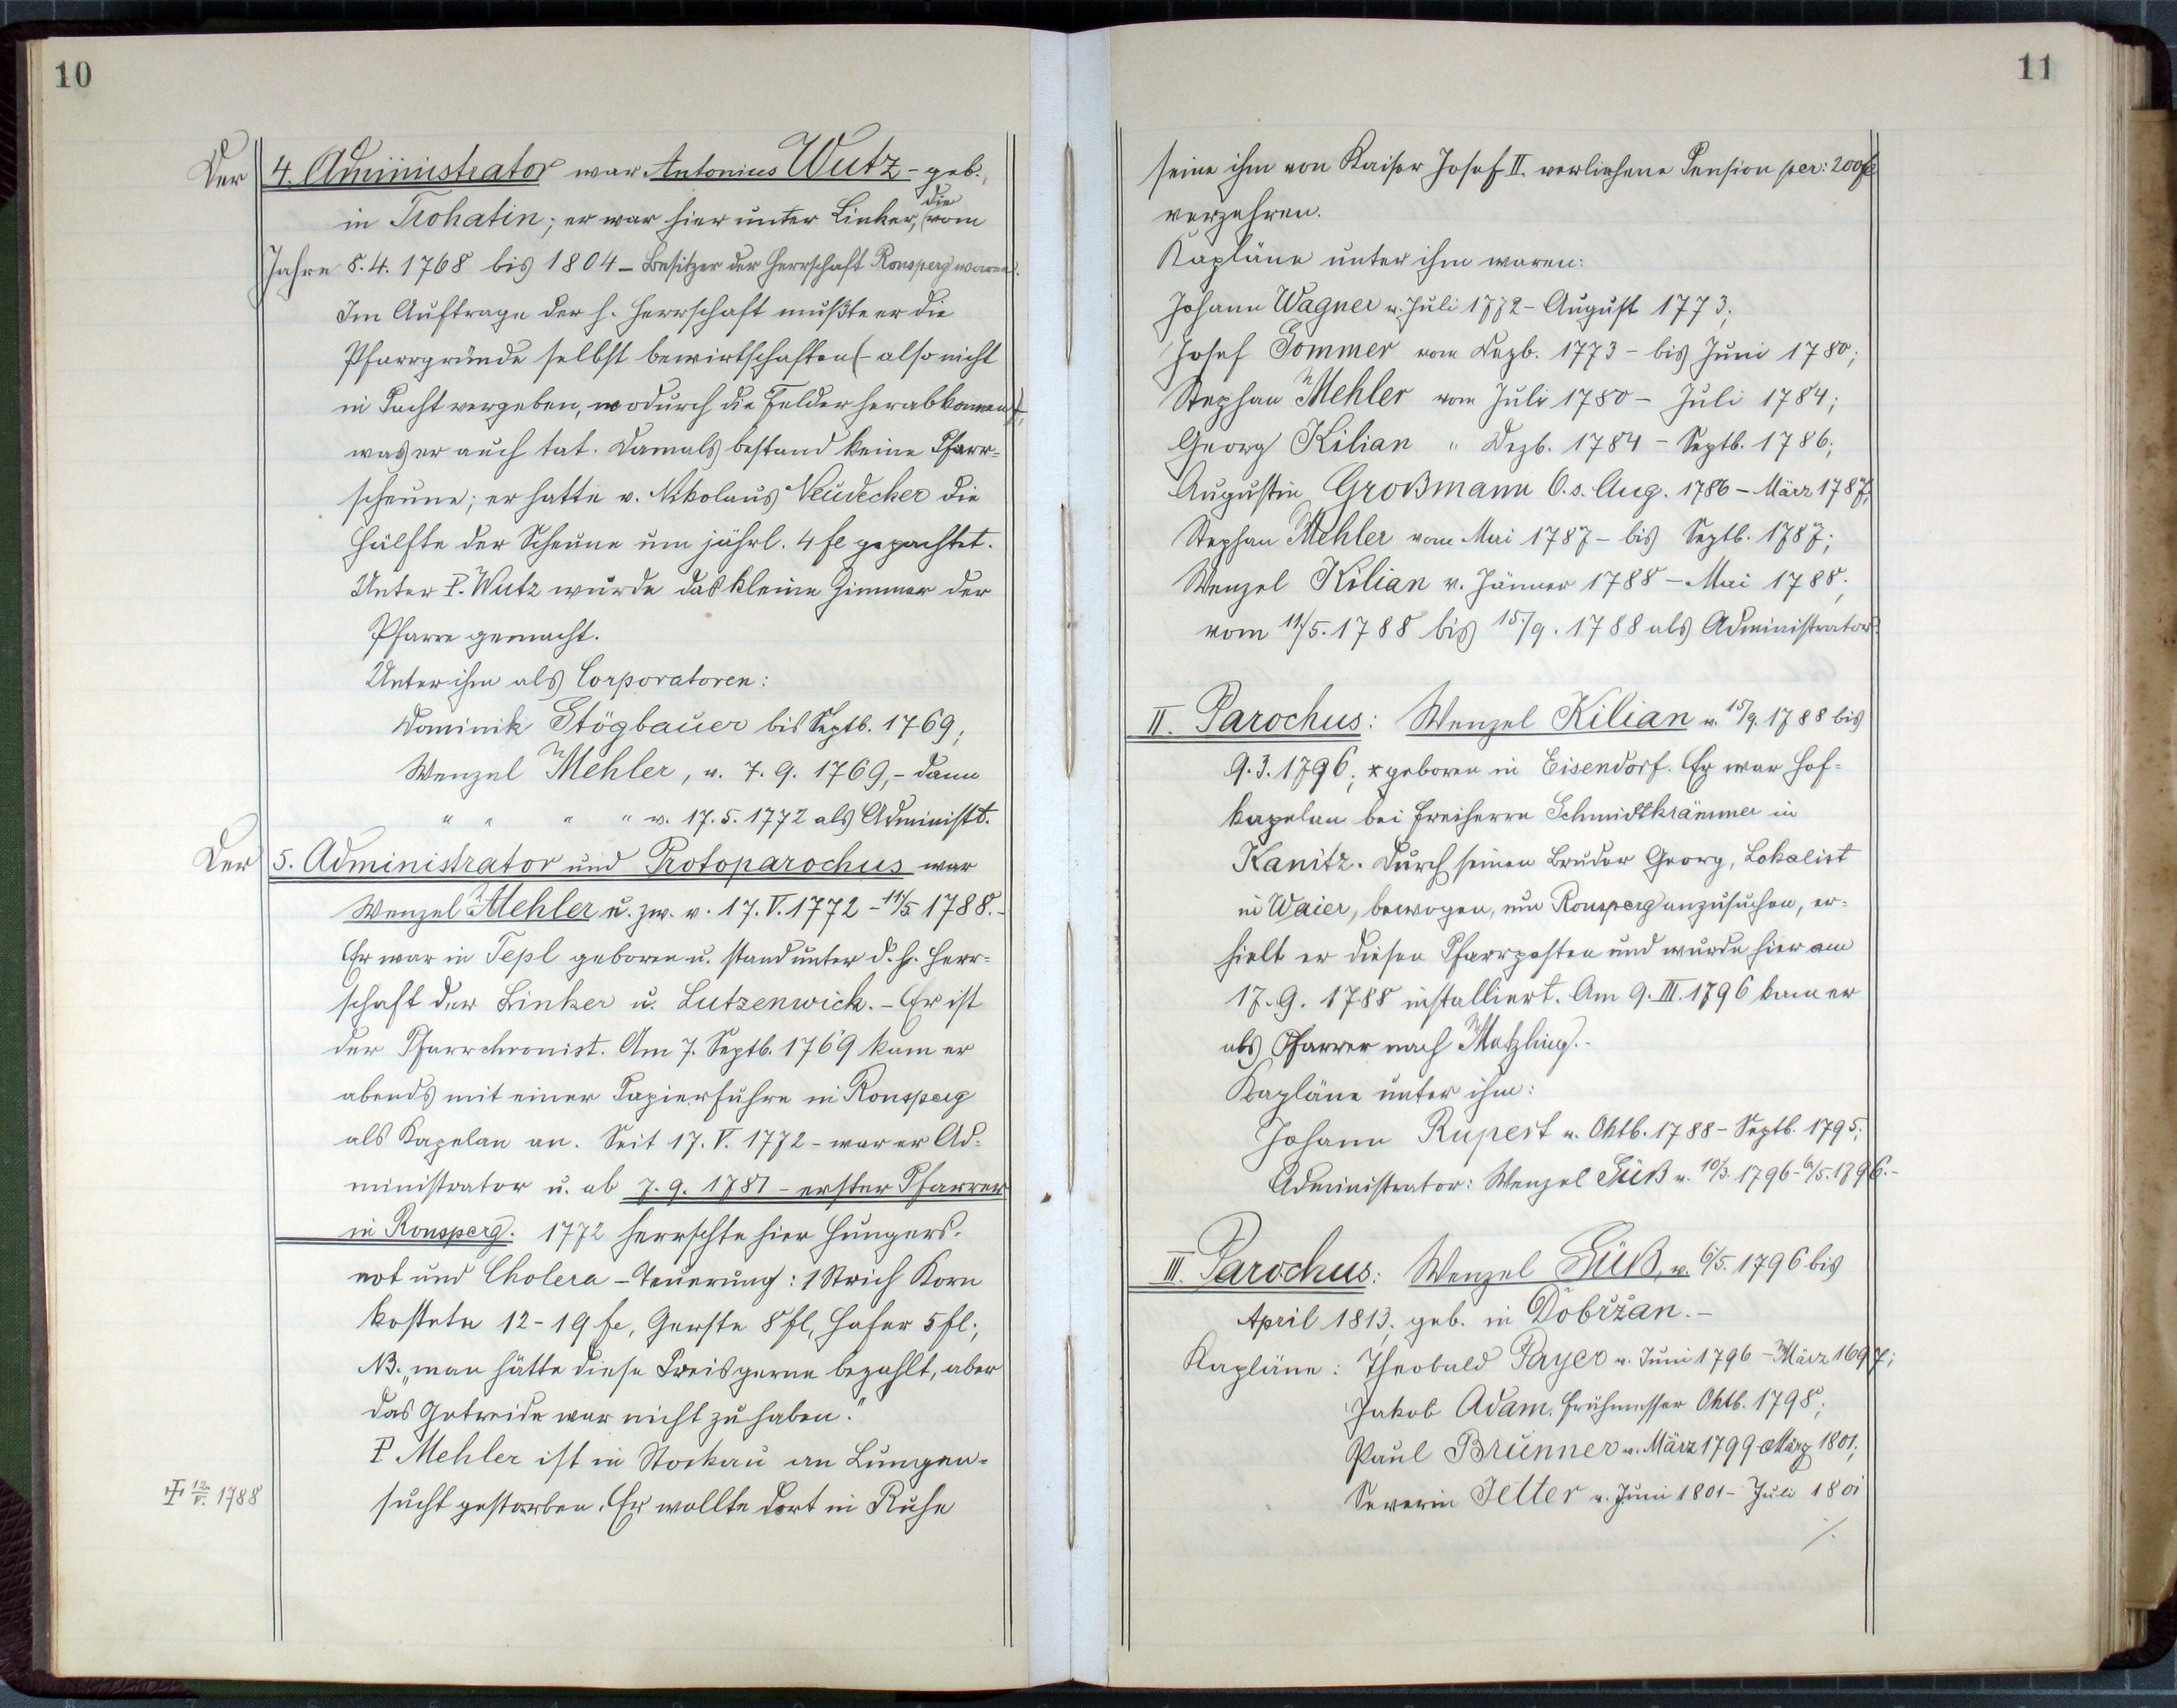 10
Der 4. Administrator war Antonius Wutz - geb.
in Trohatin; er war hier unter Linker, (die vom
Jahre 8.4.1768 bis 1804 - Besitzer der Herrschaft Ronsperg waren).
Im Auftrage der h. Herrschaft mußte er die
Pfarrgründe selbst bewirtschaften (- also nicht
in Pacht vergeben, wodurch die Felder herabkamen),
was er auch tat. Damals bestand keine Pfarr=
scheune; er hatte v. Nikolaus Neudecker die
Hälfte der Scheune um jährl. 4 fl gepachtet.
Unter P. Wutz wurde das kleine Zimmer der
Pfarre gemacht.
Unter ihm als Corporatoren:
Dominik Stögbauer bis Septb. 1769;
Wenzel Mehler, v. 7.9.1769, - dann
" " " " v. 17.5.1772 als Administ.
Der 5. Administrator und Protoparochus war
Wenzel Mehler u. zw. v. 17.V.1772 - 11/5 1788. -
Er war in Tepl geboren u. stand unter d. h. Herr=
schaft der Linker u. Lutzenwick. - Er ist
der Pfarrchronist. Am 7. Septb. 1769 kam er
abends mit einer Papierfuhre in Ronsperg
als Kapelan an. Seit 17.V.1772 - war er Ad=
ministrator u. ab 7.9.1781 - erster Pfarrer
in Ronsperg. 1772 herrschte hier Hungers=
not und Cholera - Teuerung: 1 Strich Korn
kostete 12-19 fl, Gerste 8 fl, Hafer 5 fl;
NB. "man hätte diese Preis gerne bezahlt, aber
das Getreide war nicht zu haben."
P Mehler ist in Stockau an Lungen=
† 12/V. 1788 sucht gestorben. Er wollte dort in Ruhe
11
seine ihm von Kaiser Josef II. verliehene Pension per: 200 fl
verzehren.
Kapläne unter ihm waren:
Johann Wagner v. Juli 1772 - August 1773;
Josef Sommer vom Dezb. 1773 - bis Juni 1780;
Stephan Mehler vom Juli 1780 - Juli 1784;
Georg Kilian " Dezb. 1784 - Septb. 1786;
Augustin Großmann O.s. Aug. 1786 - März 1787;
Stephan Mehler vom Mai 1787 - bis Septb. 1787;
Wenzel Kilian v. Jänner 1788 - Mai 1788;
vom 11/5. 1788 bis 15./9. 1788 als Administrator.
II. Parochus: Wenzel Kilian v. 15/9. 1788 bis
9.3.1796; * geboren in Eisendorf. Er war Hof=
kapelan bei Freiherrn Schmidtkrämmer in
Kanitz. Durch seinen Bruder Georg, Lokalist
in Waier, bewogen, um Ronsperg anzusuchen, er=
hielt er diesen Pfarrposten und wurde hier am
17.9.1788 installiert. Am 9.III.1796 kam er
als Pfarrer nach Metzling. -
Kapläne unter ihm:
Johann Rupert v. Oktb. 1788 - Septb. 1795;
Administrator: Wenzel Süß v. 10/3. 1796 - 6/5. 1796. -
III. Parochus: Wenzel Süß, v. 6/5. 1796 bis
April 1813; geb. in Dobřžan. -
Kapläne: Theobald Payer v. Juni 1796 - März 1697;
Jakob Adam, Frühmesser Oktb. 1798;
Paul Brunner v. März 1799 - März 1801;
Severin Jetter v. Juni 1801 - Juli 1801
./.